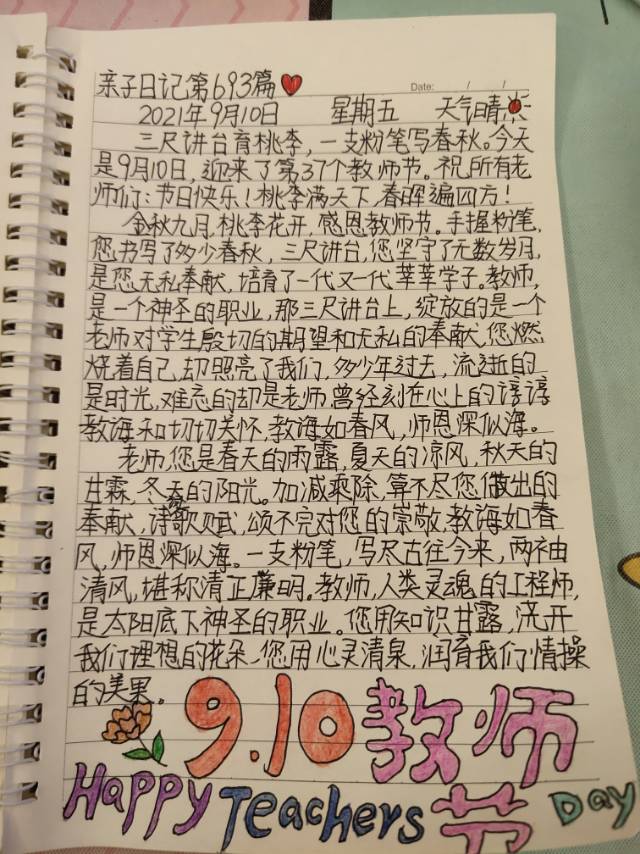 亲子日记第693篇
Date: / /
2021年9月10日 星期五 天气晴
三尺讲台育桃李,一支粉笔写春秋。今天
是9月10日,迎来了第37个教师节。祝所有老
师们:节日快乐!桃李满天下,春晖遍四方!
金秋九月,桃李花开,感恩教师节。手握粉笔,
您书写了多少春秋,三尺讲台,您坚守了无数岁月,
是您无私奉献,培育了一代又一代莘莘学子。教师,
是一个神圣的职业,那三尺讲台上,绽放的是一个
老师对学生殷切的期望和无私的奉献,您燃
烧着自己,却照亮了我们,多少年过去,流逝的
是时光,难忘的却是老师曾经刻在心上的谆谆
教诲和切切关怀,教诲如春风,师恩深似海。
老师,您是春天的雨露,夏天的凉风,秋天的
甘霖,冬天的阳光。加减乘除,算不尽您做出的
奉献,诗歌赋,颂不完对您的崇敬,教诲如春
风,师恩深似海。一支粉笔,写尽古往今来,两袖
清风,堪称清正廉明。教师,人类灵魂的工程师,
是太阳底下神圣的职业。您用知识甘露,浇开
我们理想的花朵,您用心灵清泉,润育我们情操
的美果。
9.10教师节
Happy Teachers Day